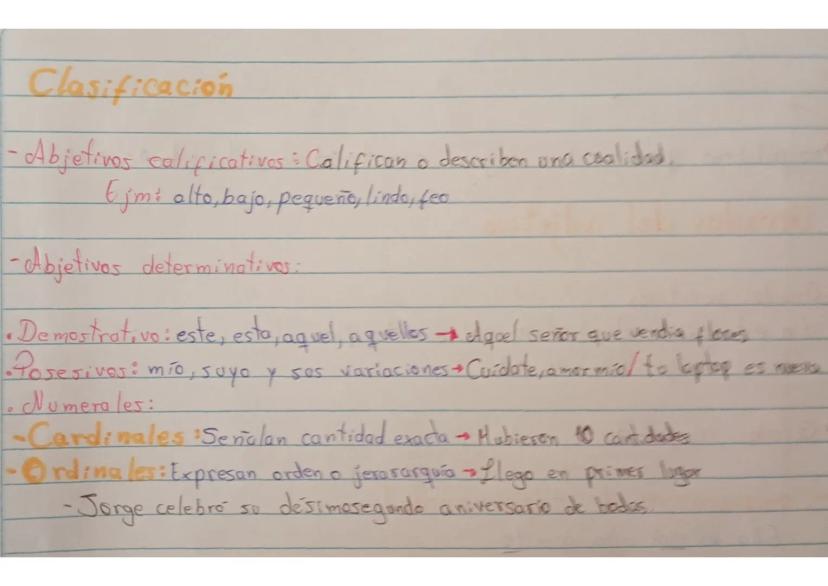 Clasificación
- Abjetivos calificativos: Califican o describen una coalidad.
Ejm: alto, bajo, pequeño, lindo, feo
- Abjetivos determinativos:
• Demostrativo: este, esta, aquel, aquellos → Aquel señor que vendia flores
• Posesivos: mío, suyo y sos variaciones → Cuidate, amor mio/ tu laptop es nueva
• Numerales:
- Cardinales: Señalan cantidad exacta → Hubieron 10 cantidades
- Ordinales: Expresan orden o jerasarquía → llego en primer lugar
- Jorge celebró su désimosegundo aniversario de bodas.